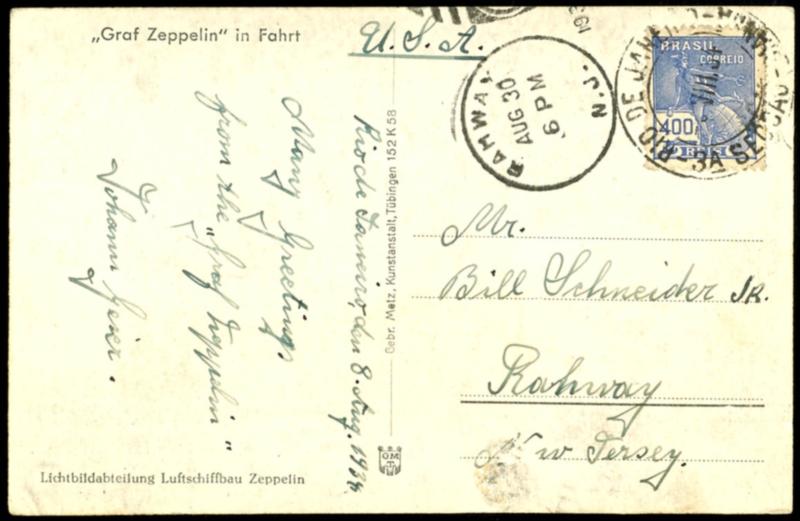 „Graf Zeppelin" in Fahrt
U.S.A.
Rio de Janeiro, den 8. Aug. 1934
Many Greetings
from the „Graf Zeppelin"
Johann Geier.
Lichtbildabteilung Luftschiffbau Zeppelin
Gebr. Metz, Kunstanstalt, Tübingen 152 K 58
RAHWAY
N.J.
AUG 30
6 PM
BRASIL
CORREIO
400
RIO DE JANEIRO
3A SECÇÃO
Mr.
Bill Schneider Jr.
Rahway
New Jersey.